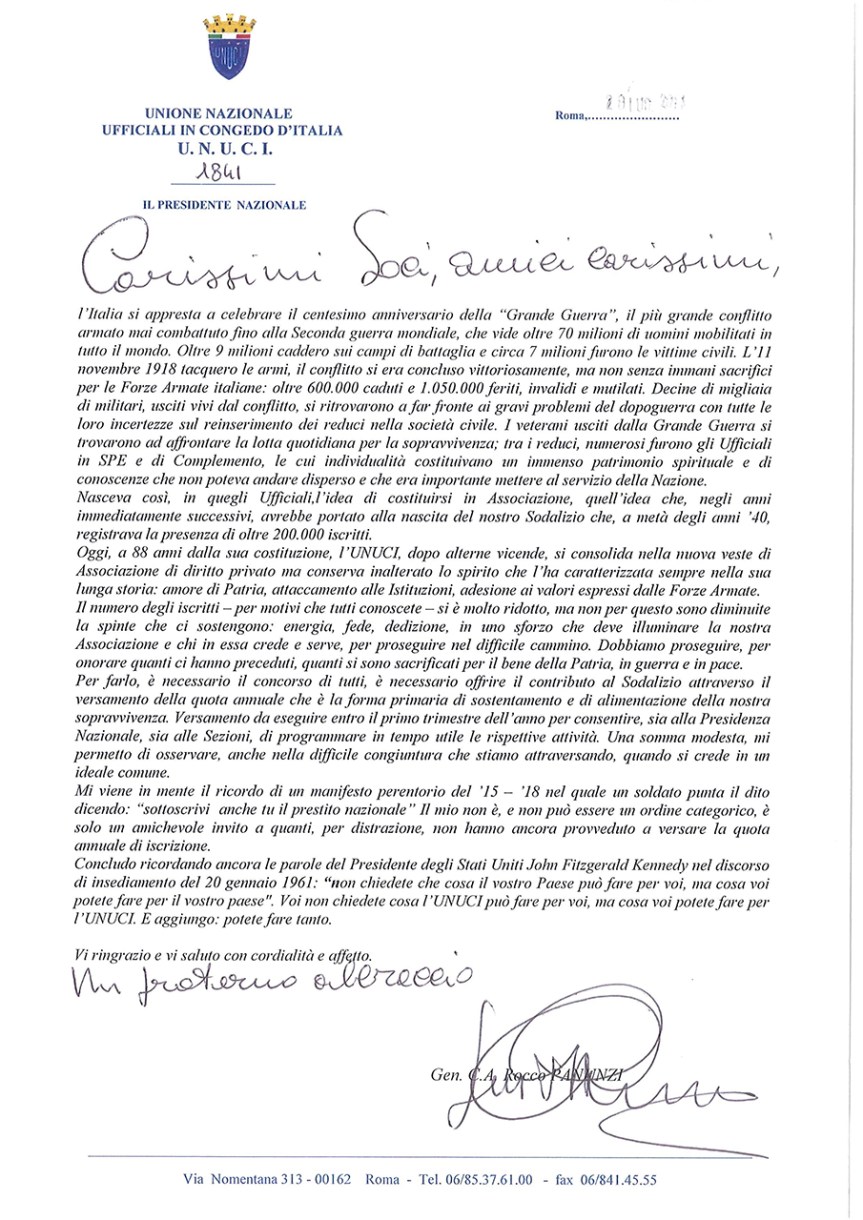 UNUCI
UNIONE NAZIONALE
UFFICIALI IN CONGEDO D'ITALIA
U. N. U. C. I.
1841
IL PRESIDENTE NAZIONALE
Roma,.......................
Carissimi Soci, amici carissimi,
l'Italia si appresta a celebrare il centesimo anniversario della "Grande Guerra", il più grande conflitto
armato mai combattuto fino alla Seconda guerra mondiale, che vide oltre 70 milioni di uomini mobilitati in
tutto il mondo. Oltre 9 milioni caddero sui campi di battaglia e circa 7 milioni furono le vittime civili. L'11
novembre 1918 tacquero le armi, il conflitto si era concluso vittoriosamente, ma non senza immani sacrifici
per le Forze Armate italiane: oltre 600.000 caduti e 1.050.000 feriti, invalidi e mutilati. Decine di migliaia
di militari, usciti vivi dal conflitto, si ritrovarono a far fronte ai gravi problemi del dopoguerra con tutte le
loro incertezze sul reinserimento dei reduci nella società civile. I veterani usciti dalla Grande Guerra si
trovarono ad affrontare la lotta quotidiana per la sopravvivenza; tra i reduci, numerosi furono gli Ufficiali
in SPE e di Complemento, le cui individualità costituivano un immenso patrimonio spirituale e di
conoscenze che non poteva andare disperso e che era importante mettere al servizio della Nazione.
Nasceva così, in quegli Ufficiali,l'idea di costituirsi in Associazione, quell'idea che, negli anni
immediatamente successivi, avrebbe portato alla nascita del nostro Sodalizio che, a metà degli anni '40,
registrava la presenza di oltre 200.000 iscritti.
Oggi, a 88 anni dalla sua costituzione, l'UNUCI, dopo alterne vicende, si consolida nella nuova veste di
Associazione di diritto privato ma conserva inalterato lo spirito che l'ha caratterizzata sempre nella sua
lunga storia: amore di Patria, attaccamento alle Istituzioni, adesione ai valori espressi dalle Forze Armate.
Il numero degli iscritti – per motivi che tutti conoscete – si è molto ridotto, ma non per questo sono diminuite
la spinte che ci sostengono: energia, fede, dedizione, in uno sforzo che deve illuminare la nostra
Associazione e chi in essa crede e serve, per proseguire nel difficile cammino. Dobbiamo proseguire, per
onorare quanti ci hanno preceduti, quanti si sono sacrificati per il bene della Patria, in guerra e in pace.
Per farlo, è necessario il concorso di tutti, è necessario offrire il contributo al Sodalizio attraverso il
versamento della quota annuale che è la forma primaria di sostentamento e di alimentazione della nostra
sopravvivenza. Versamento da eseguire entro il primo trimestre dell'anno per consentire, sia alla Presidenza
Nazionale, sia alle Sezioni, di programmare in tempo utile le rispettive attività. Una somma modesta, mi
permetto di osservare, anche nella difficile congiuntura che stiamo attraversando, quando si crede in un
ideale comune.
Mi viene in mente il ricordo di un manifesto perentorio del '15 – '18 nel quale un soldato punta il dito
dicendo: "sottoscrivi anche tu il prestito nazionale" Il mio non è, e non può essere un ordine categorico, è
solo un amichevole invito a quanti, per distrazione, non hanno ancora provveduto a versare la quota
annuale di iscrizione.
Concludo ricordando ancora le parole del Presidente degli Stati Uniti John Fitzgerald Kennedy nel discorso
di insediamento del 20 gennaio 1961: "non chiedete che cosa il vostro Paese può fare per voi, ma cosa voi
potete fare per il vostro paese". Voi non chiedete cosa l'UNUCI può fare per voi, ma cosa voi potete fare per
l'UNUCI. E aggiungo: potete fare tanto.
Vi ringrazio e vi saluto con cordialità e affetto.
Un fraterno abbraccio
Gen. C.A. Rocco PANUNZI
Via Nomentana 313 - 00162 Roma - Tel. 06/85.37.61.00 - fax 06/841.45.55